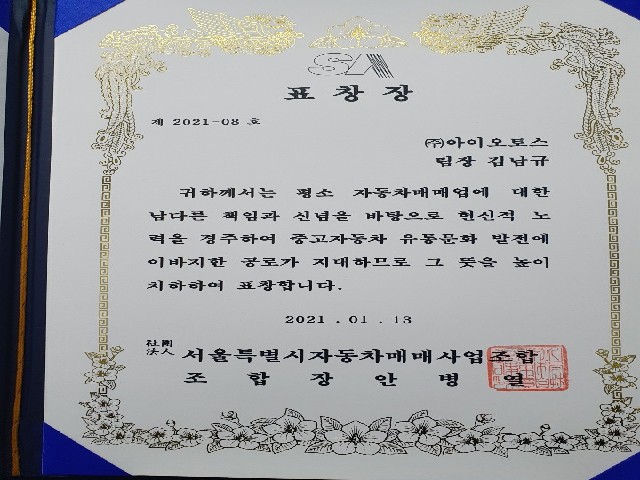 SA
표창장
제 2021-08 호
㈜아이오토스
팀장 김남규
귀하께서는 평소 자동차매매업에 대한
남다른 책임과 신념을 바탕으로 헌신적 노
력을 경주하여 중고자동차 유통문화 발전에
이바지한 공로가 지대하므로 그 뜻을 높이
치하하여 표창합니다.
2021 . 01 . 13
社團
法人 서울특별시자동차매매사업조합
조합장 안병열